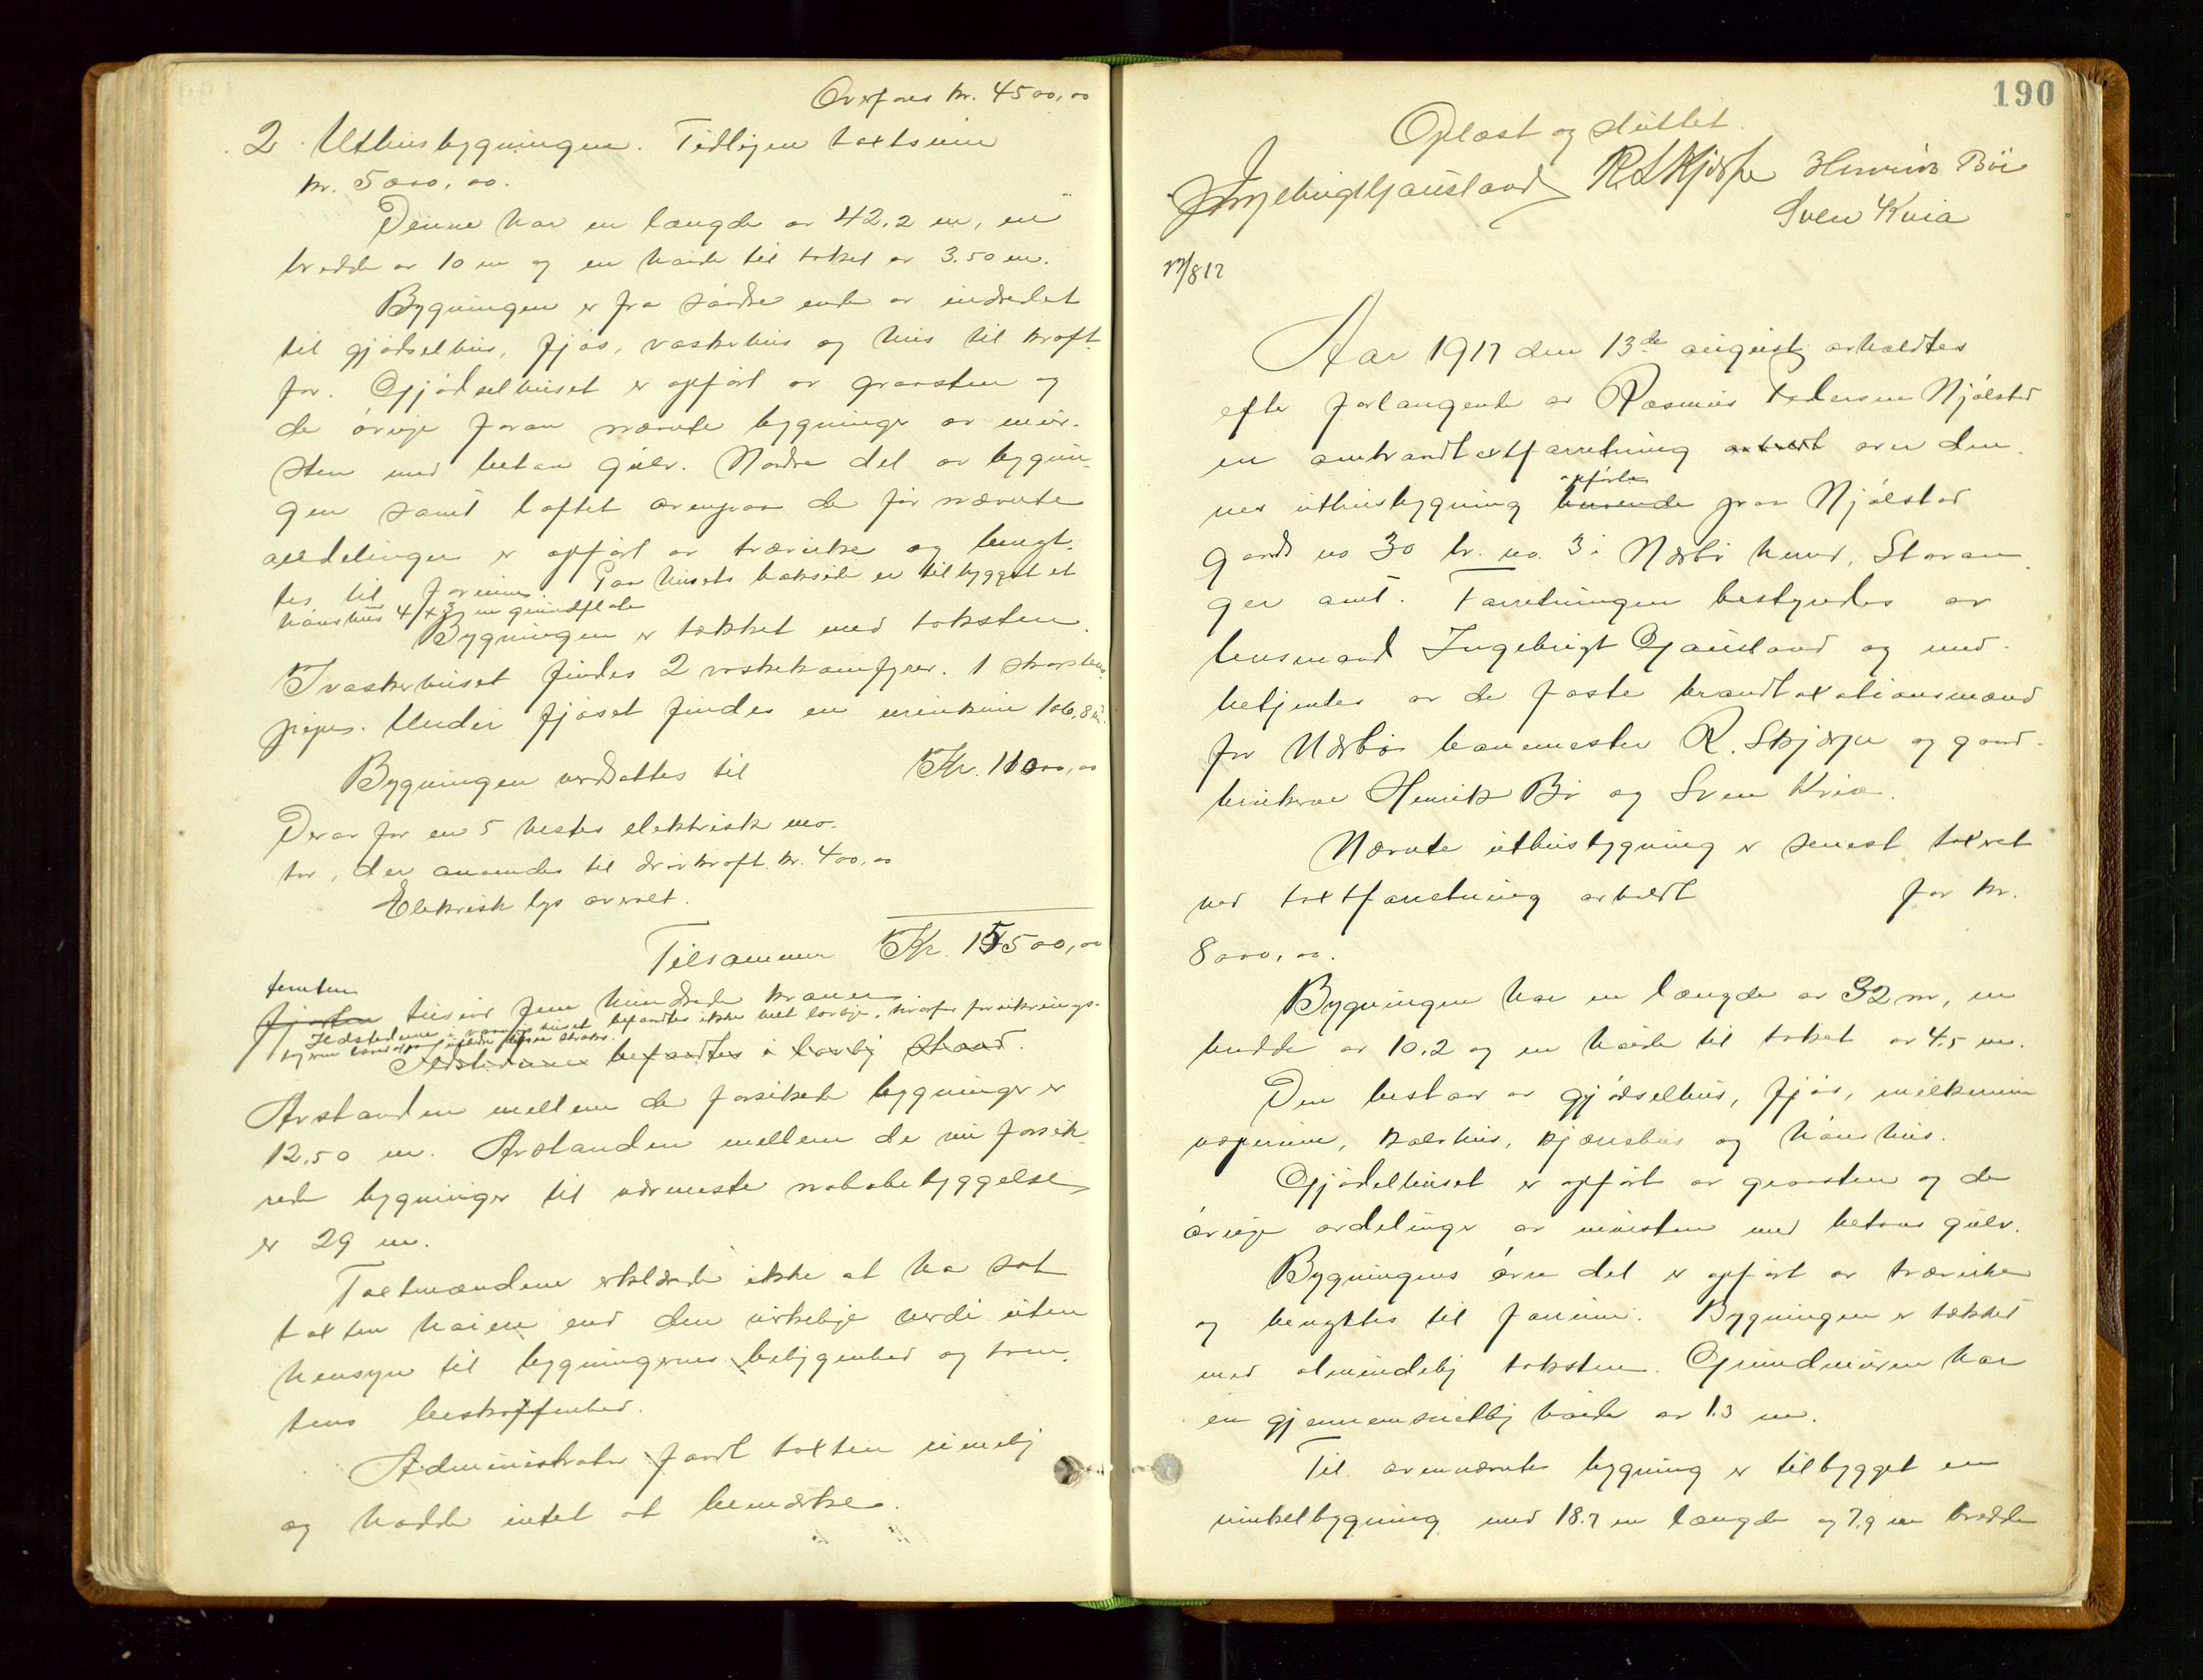 Overføres kr. 4500,00
2. Uthusbygningen. Tidligere takstsum
kr. 5000,00.
Denne har en længde av 42,2 m, en
bredde av 10 m og en høide til taket av 3.50 m.
Bygningen er fra søndre ende av indredet
til gjødselhus, fjøs, vaskehus og hus til kraft-
for. Gjødselhuset er opført av graasten og
de øvrige foran nævnte bygninger av mur-
sten med beton gulv. Nordre del av bygnin-
gen samt loftet ovenpaa de før nævnte
avdelinger er opført av trævirke og benyt-
tes til forrum. Paa husets bakside er tilbygget et
hønshus 4 x 3 m grundflate
Bygningen er tækket med taksten.
I vaskehuset findes 2 vaskekomfyrer. 1 skorstens-
pipe. Under fjøset findes en urinkum 106,8 m³.
Bygningen værdsattes til Kr. 11000,00
Derav for en 5 hestes elektrisk mo-
tor, der anvendes til drivkraft kr. 400,00
Elektrisk lys overalt.
Tilsammen Kr. 15500,00
femten
fjorten tusind fem hundrede kroner
Ildstederne i vaaningshuset befandtes ikke helt lovlige, hvorfor forsikrings-
Ildstederne befandtes i lovlig stand.
Avstanden mellem de forsikrede bygninger er
12.50 m. Avstanden mellem de nu forsik-
rede bygninger til nærmeste nabobebyggelse
er 29 m.
Takstmændene erklærede ikke at ha sat
taksten høiere end den virkelige værdi uten
hensyn til bygningernes beliggenhed og tom-
tens beskaffenhed.
Administrator fandt taksten rimelig
og hadde intet at bemærke.
190
Oplæst og sluttet.
Ingebrigt Gausland R. Skjærpe Henrik Bø
Sven Kvia
17/8 17
Aar 1917 den 13de august avholdtes
efter forlangende av Rasmus Pedersen Njølstad
en ombrandtakstforretning avholdt over den-
opførte
nes uthusbygning benende paa Njølstad
gards no 30 br. no. 3 i Nærbø herred, Stavan-
ger amt. Forretningen bestyredes av
lensmand Ingebrigt Gausland og med-
betjentes av de faste brandtaxationsmænd
for Nærbø banemester R. Skjærpe og gard-
brukerne Henrik Bø og Sven Kvia.
Nævnte uthusbygning er senest takseret
ved takstforretning avholdt for kr.
8000,00.
Bygningen har en længde av 32 m, en
bredde av 10.2 og en høide til taket av 4.5 m.
Den bestaar av gjødselhus, fjøs, melkerum
vognrum, kalvhus, kjørehus og hønshus.
Gjødselhuset er opført av graasten og de
øvrige avdelinger av mursten med betons gulv.
Bygningens øvre del er opført av trævirke
og benyttes til forrum. Bygningen er tækket
med almindelig taksten. Grundmuren har
en gjennemsnitlig høide av 1.3 m.
Til ovennævnte bygning er tilbygget en
vinkelbygning med 18.7 m længde og 7.9 m bredde